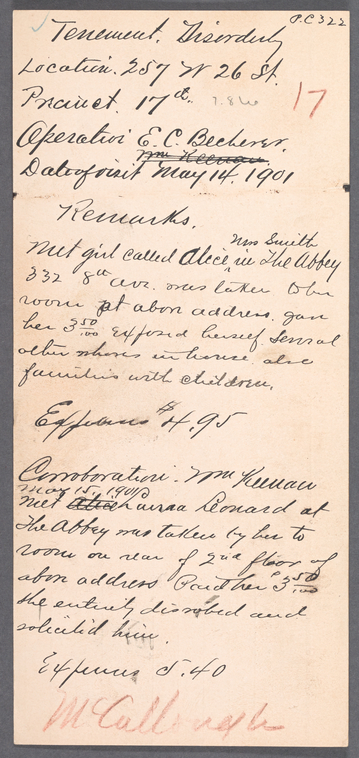 P.C 322
Tenement. Disorderly
Location. 257 W 26 St.
Precinct. 17th. 17
Operative E. C. Becherer.
Wm Keenan
Date of visit May 14. 1901
Remarks.
Mrs Smith
Met girl called Alice, in The Abbey
332 8th ave. was taken to her
room at above address. gave
her 3 50/00 exposed herself. Several
other whores in house also
families with children.
Expenses $4.95
Corroboration. Wm Keenan
May 15, 1901
Met Alice Laura Leonard at
The Abbey was taken by her to
room on rear of 2nd floor of
above address Paid her $3 50/00
she entirely disrobed and
solicitid him.
Expenses 5.40
McCullough